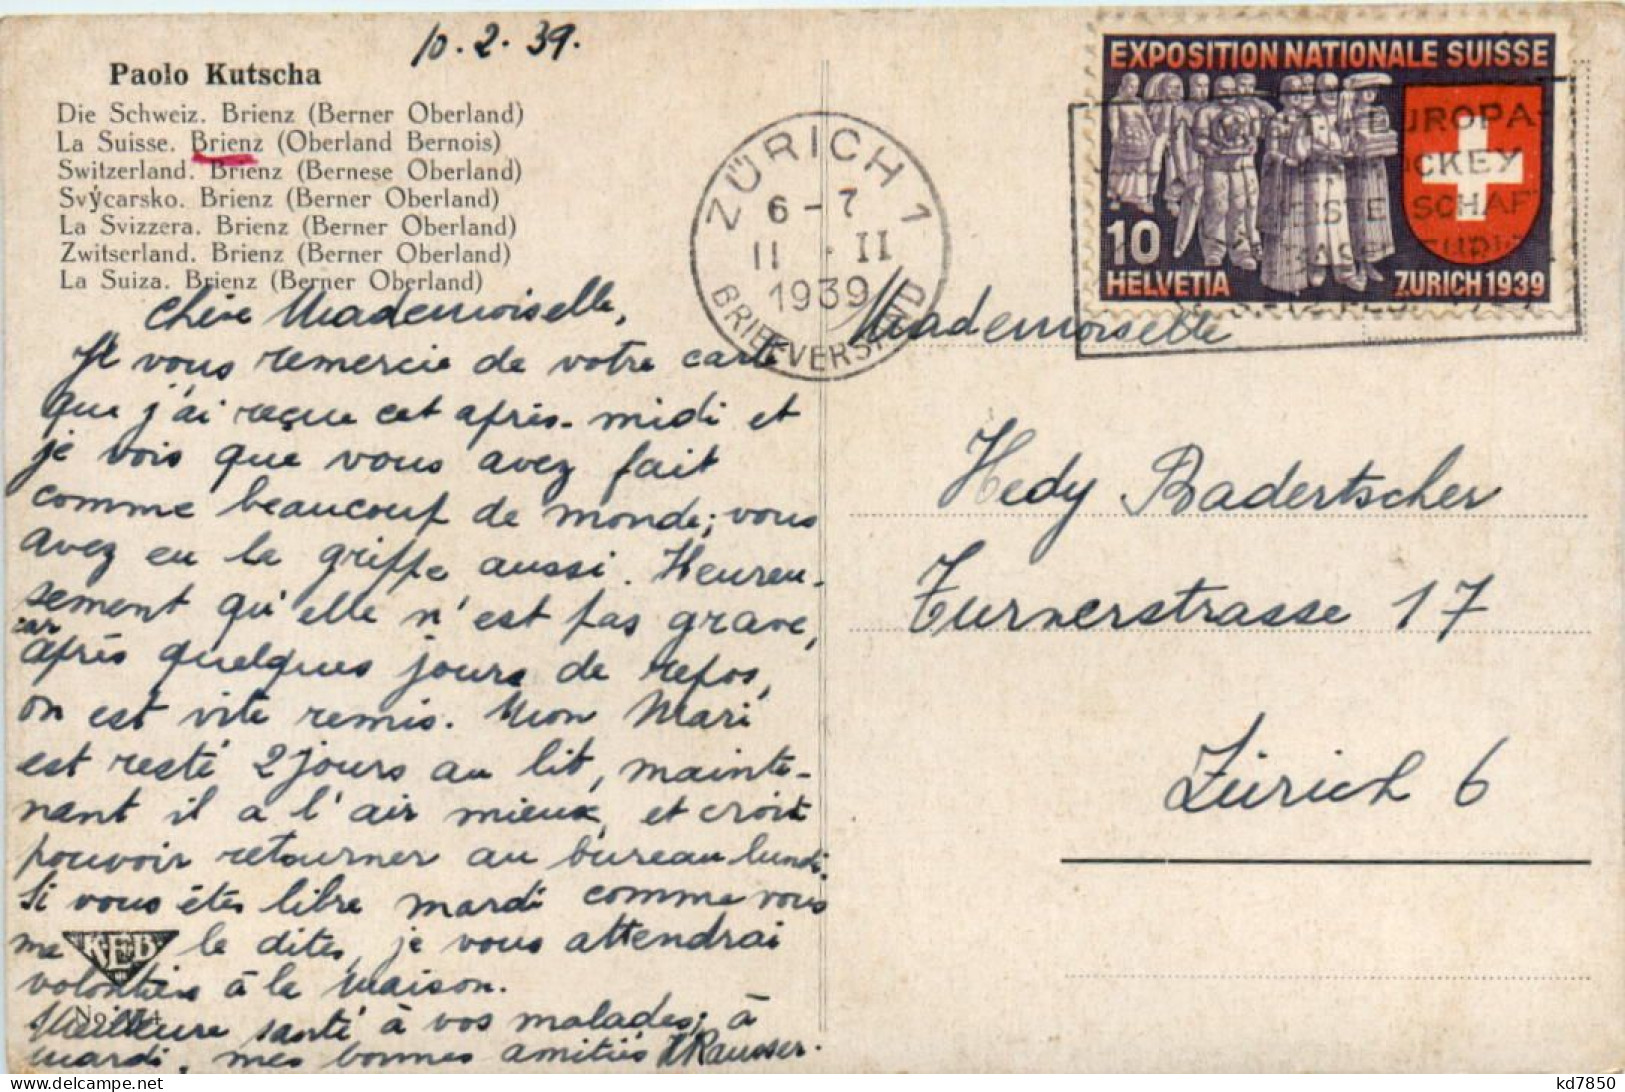 10.2.39.
Paolo Kutscha
Die Schweiz. Brienz (Berner Oberland)
La Suisse. Brienz (Oberland Bernois)
Switzerland. Brienz (Bernese Oberland)
Svýcarsko. Brienz (Berner Oberland)
La Svizzera. Brienz (Berner Oberland)
Zwitserland. Brienz (Berner Oberland)
La Suiza. Brienz (Berner Oberland)
Chère Mademoiselle,
Je vous remercie de votre carte
que j'ai reçue cet après-midi et
je vois que vous avez fait
comme beaucoup de monde; vous
avez eu la griffe aussi. Heureu-
sement qu'elle n'est pas grave,
car
après quelques jours de repos,
on est vite remis. Mon Mari
est resté 2 jours au lit, mainte-
nant il a l'air mieux, et croit
pouvoir retourner au bureau lundi.
Si vous êtes libre mardi comme vous
me le dites, je vous attendrai
volontiers à la maison.
Meilleure santé à vos malades; à
mardi, mes bonnes amitiés
KEB
No
ZÜRICH 1
6-7
11.II
1939
BRIEFVERSAND
EXPOSITION NATIONALE SUISSE
10
HELVETIA
ZURICH 1939
EUROPA-
Mademoiselle
Hedy Badertscher
Turnerstrasse 17
Zürich 6
kd7850